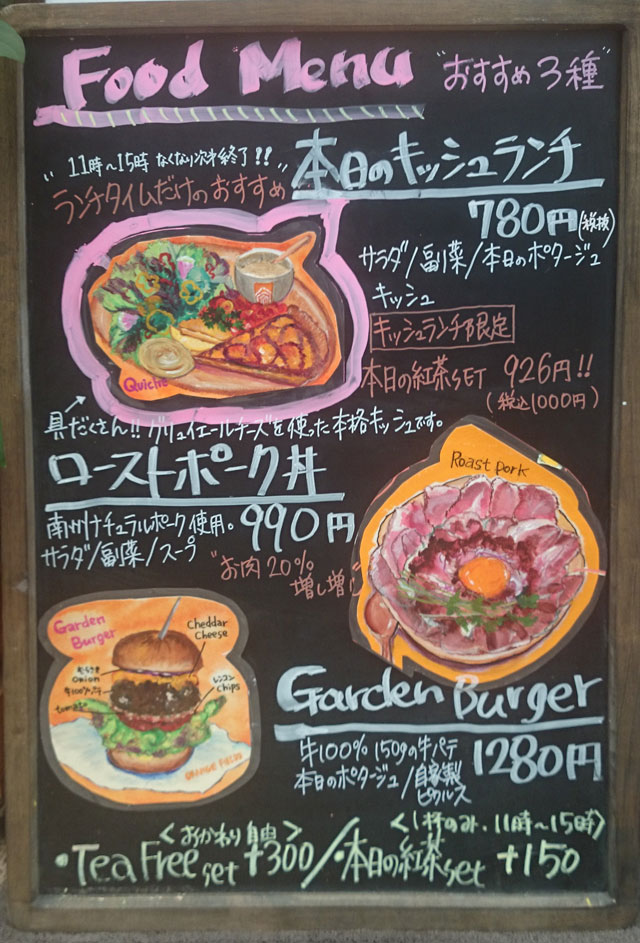 Food Menu
"おすすめ3種"
"11時〜15時 なくなり次第終了!!"
ランチタイムだけのおすすめ
本日のキッシュランチ
780円(税抜)
サラダ/副菜/本日のポタージュ
キッシュ
キッシュランチ限定
本日の紅茶SET 926円!!
(税込1000円)
Quiche
具だくさん!! グリュイエールチーズを使った本格キッシュです。
ローストポーク丼
990円
南州ナチュラルポーク使用。
サラダ/副菜/スープ
"お肉20%
増し増し"
Roast pork
Garden
Burger
Cheddar
Cheese
むらさき
onion
牛100%パティ
tomato
レンコン
Chips
ORANGE FIELDS
Garden Burger
1280円
牛100% 150gの牛パテ
本日のポタージュ/自家製
ピクルス
<おかわり自由>
・Tea Free set +300/
<1杯のみ、11時〜15時>
・本日の紅茶set +150